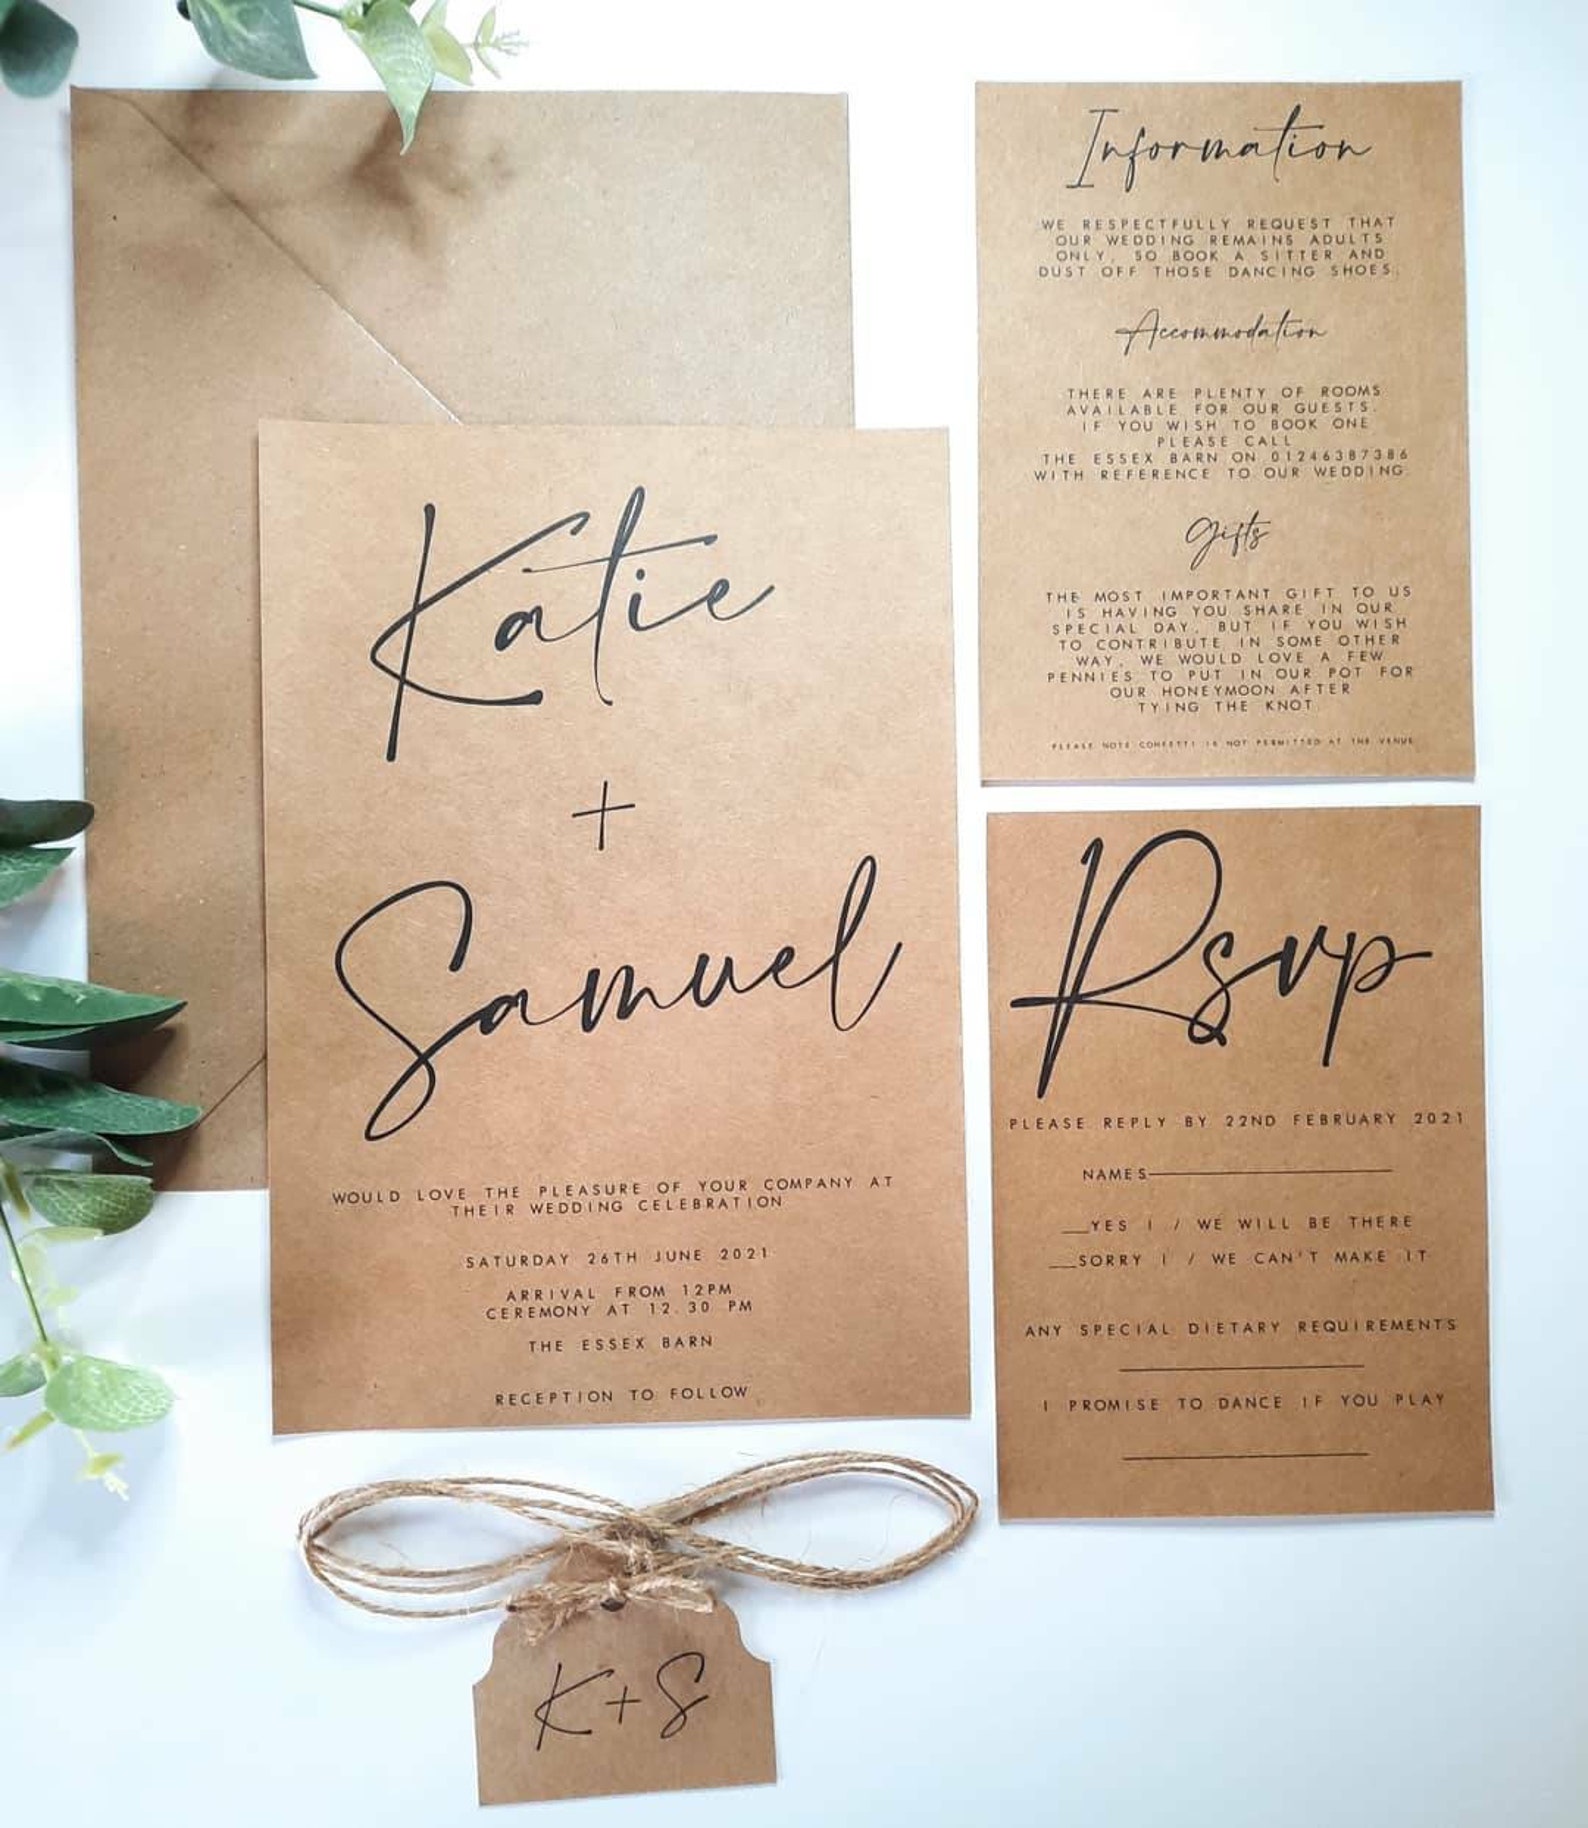 Katie
+
Samuel
WOULD LOVE THE PLEASURE OF YOUR COMPANY AT
THEIR WEDDING CELEBRATION
SATURDAY 26TH JUNE 2021
ARRIVAL FROM 12PM
CEREMONY AT 12.30 PM
THE ESSEX BARN
RECEPTION TO FOLLOW
Information
WE RESPECTFULLY REQUEST THAT
OUR WEDDING REMAINS ADULTS
ONLY, SO BOOK A SITTER AND
DUST OFF THOSE DANCING SHOES.
Accommodation
THERE ARE PLENTY OF ROOMS
AVAILABLE FOR OUR GUESTS.
IF YOU WISH TO BOOK ONE
PLEASE CALL
THE ESSEX BARN ON 01246387386
WITH REFERENCE TO OUR WEDDING.
Gifts
THE MOST IMPORTANT GIFT TO US
IS HAVING YOU SHARE IN OUR
SPECIAL DAY, BUT IF YOU WISH
TO CONTRIBUTE IN SOME OTHER
WAY, WE WOULD LOVE A FEW
PENNIES TO PUT IN OUR POT FOR
OUR HONEYMOON AFTER
TYING THE KNOT.
PLEASE NOTE CONFETTI IS NOT PERMITTED AT THE VENUE
Rsvp
PLEASE REPLY BY 22ND FEBRUARY 2021
NAMES
__YES I / WE WILL BE THERE
__SORRY I / WE CAN'T MAKE IT
ANY SPECIAL DIETARY REQUIREMENTS
I PROMISE TO DANCE IF YOU PLAY
K+S